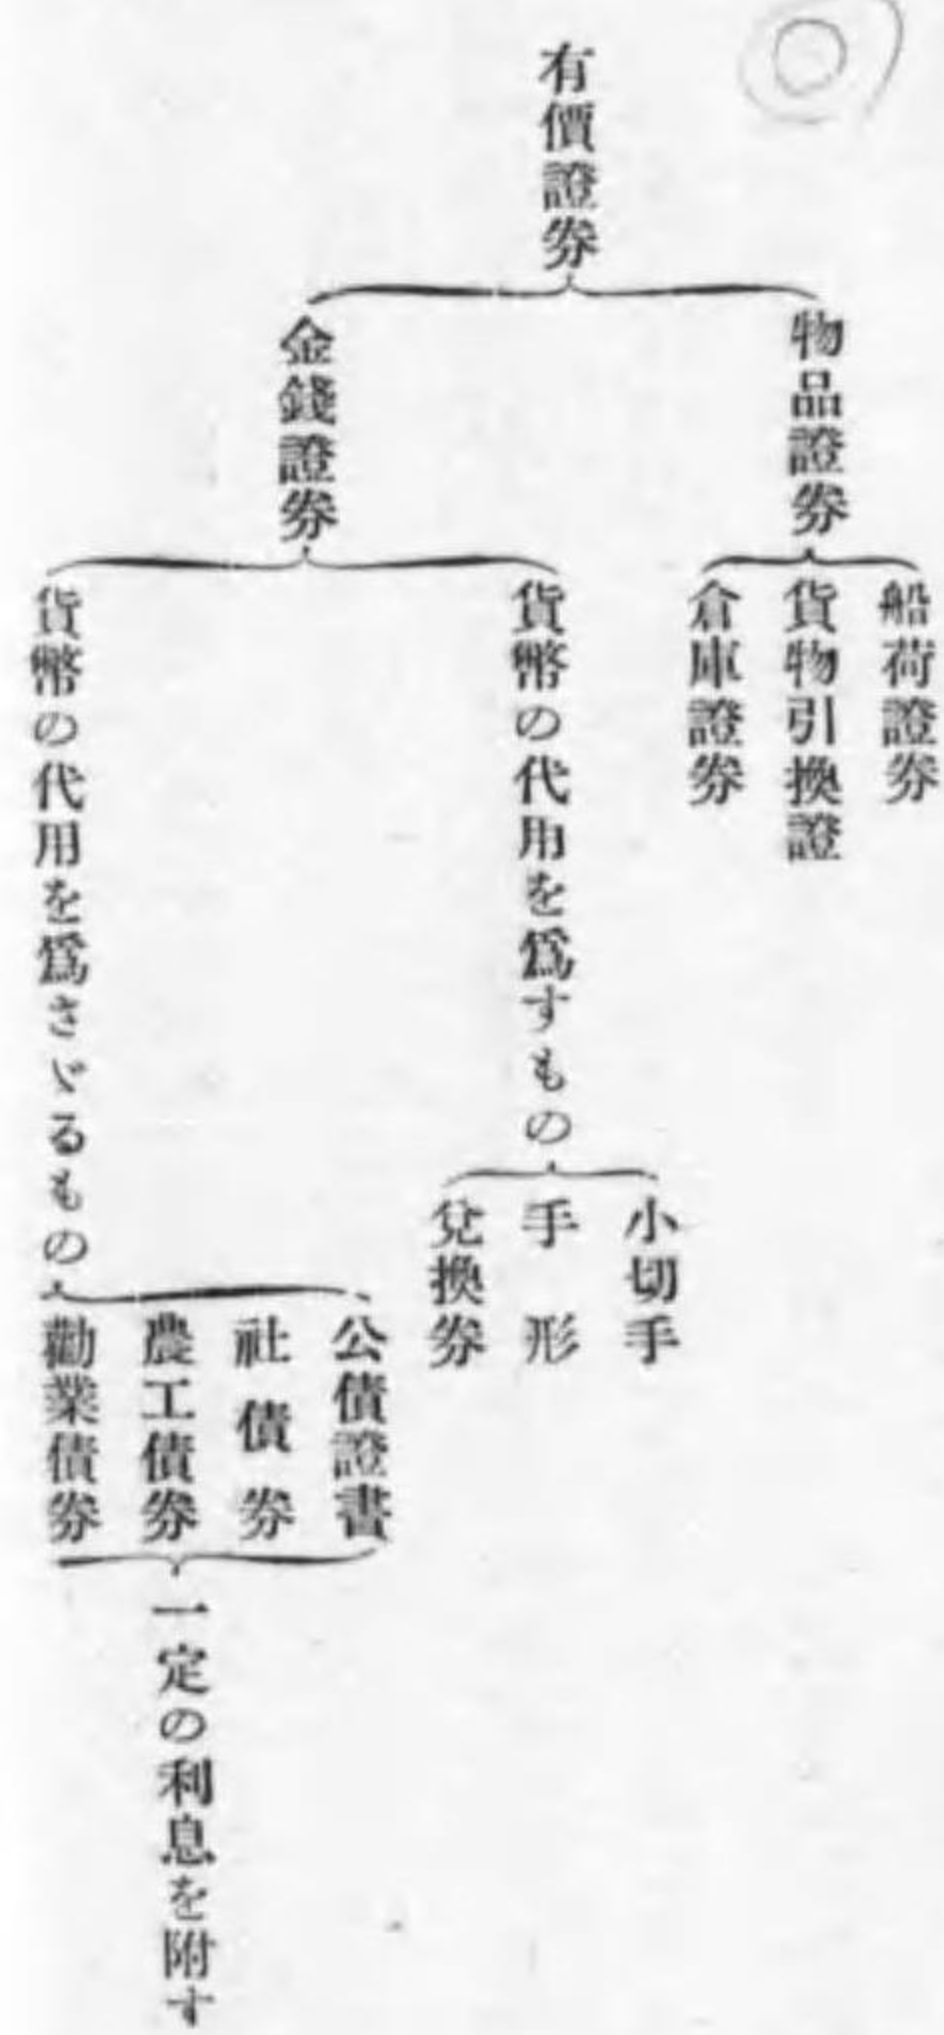 有價證券
物品證券
船荷證券
貨物引換證
倉庫證券
金錢證券
貨幣の代用を爲すもの
小切手
手形
兌換券
貨幣の代用を爲さゞるもの
公債證書
社債券
農工債券
勸業債券
一定の利息を附す